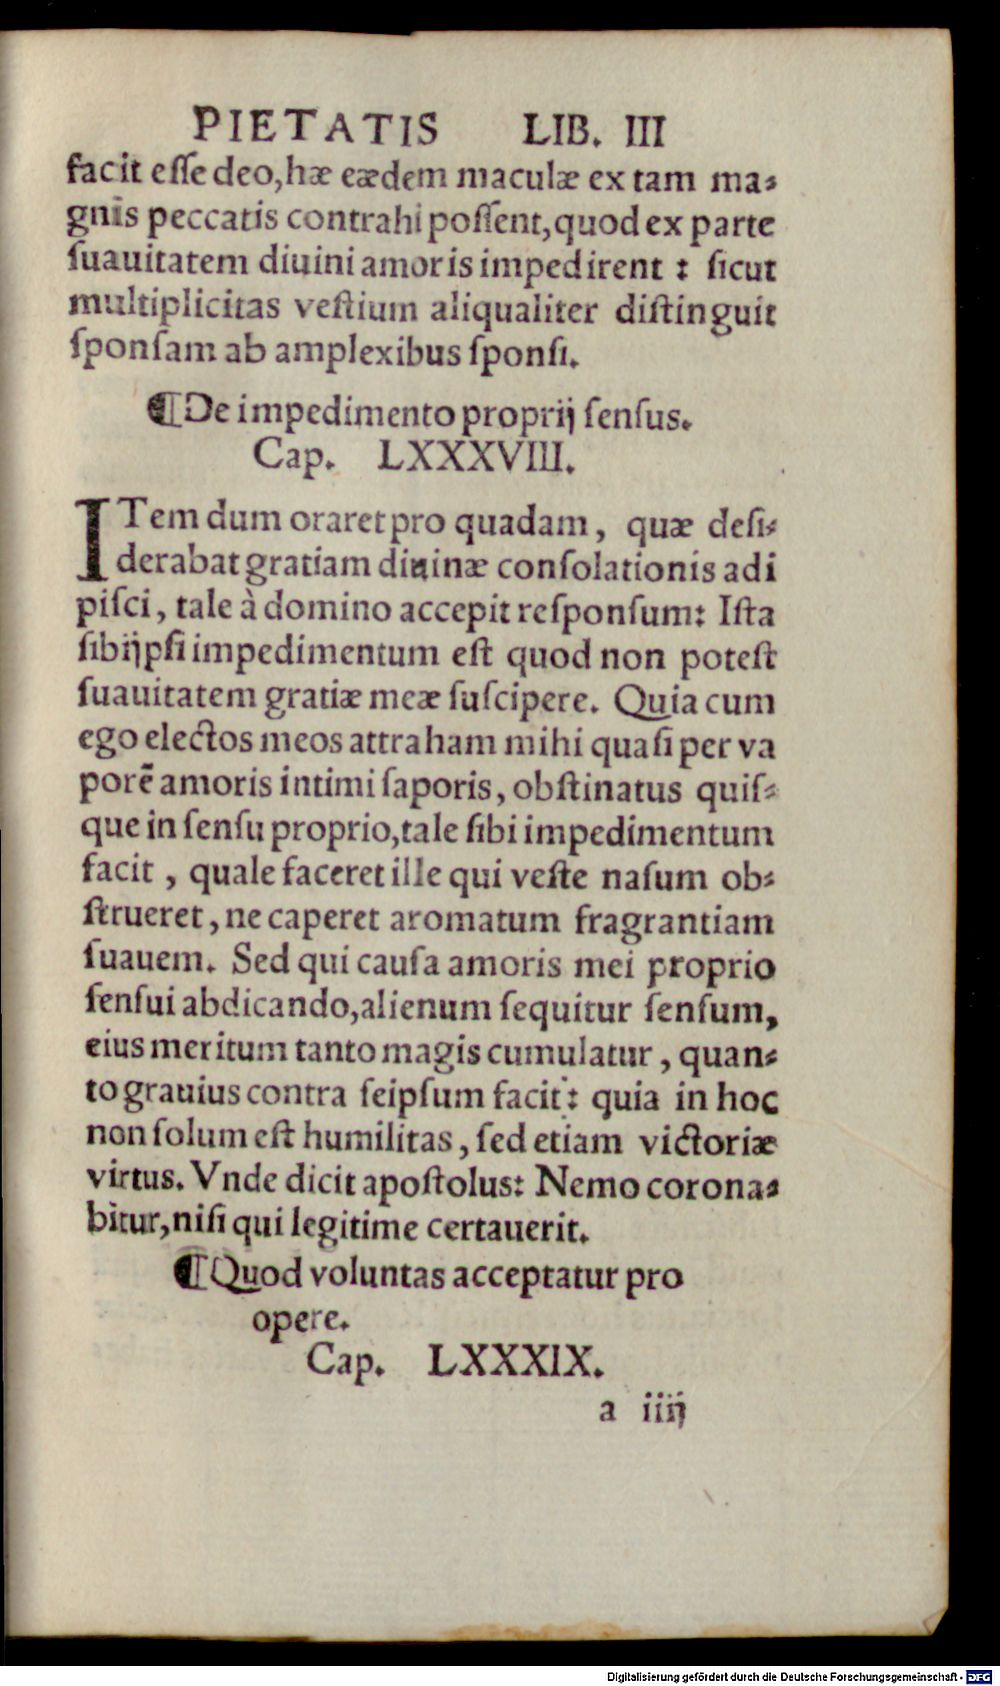 PIETATIS LIB. III
facit eſſe deo, hæ eædem maculæ ex tam ma⸗
gnis peccatis contrahi poſſent, quod ex parte
ſuauitatem diuini amoris impedirent : ſicut
multiplicitas veſtium aliqualiter diſtinguit
ſponſam ab amplexibus ſponſi.
¶De impedimento proprij ſenſus.
Cap. LXXXVIII.
ITem dum oraret pro quadam, quæ deſi⸗
derabat gratiam diuinæ conſolationis adi
piſci, tale à domino accepit reſponſum: Iſta
ſibijpſi impedimentum eſt quod non poteſt
ſuauitatem gratiæ meæ ſuſcipere. Quia cum
ego electos meos attraham mihi quaſi per va
porē amoris intimi ſaporis, obſtinatus quiſ⸗
que in ſenſu proprio, tale ſibi impedimentum
facit , quale faceret ille qui veſte naſum ob⸗
ſtrueret, ne caperet aromatum fragrantiam
ſuauem. Sed qui cauſa amoris mei proprio
ſenſui abdicando, alienum ſequitur ſenſum,
eius meritum tanto magis cumulatur, quan⸗
to grauius contra ſeipſum facit: quia in hoc
non ſolum eſt humilitas, ſed etiam victoriæ
virtus. Vnde dicit apoſtolus: Nemo corona⸗
bitur, niſi qui legitime certauerit.
¶Quod voluntas acceptatur pro
opere.
Cap. LXXXIX.
a iiij
Digitalisierung gefördert durch die Deutsche Forschungsgemeinschaft - DFG